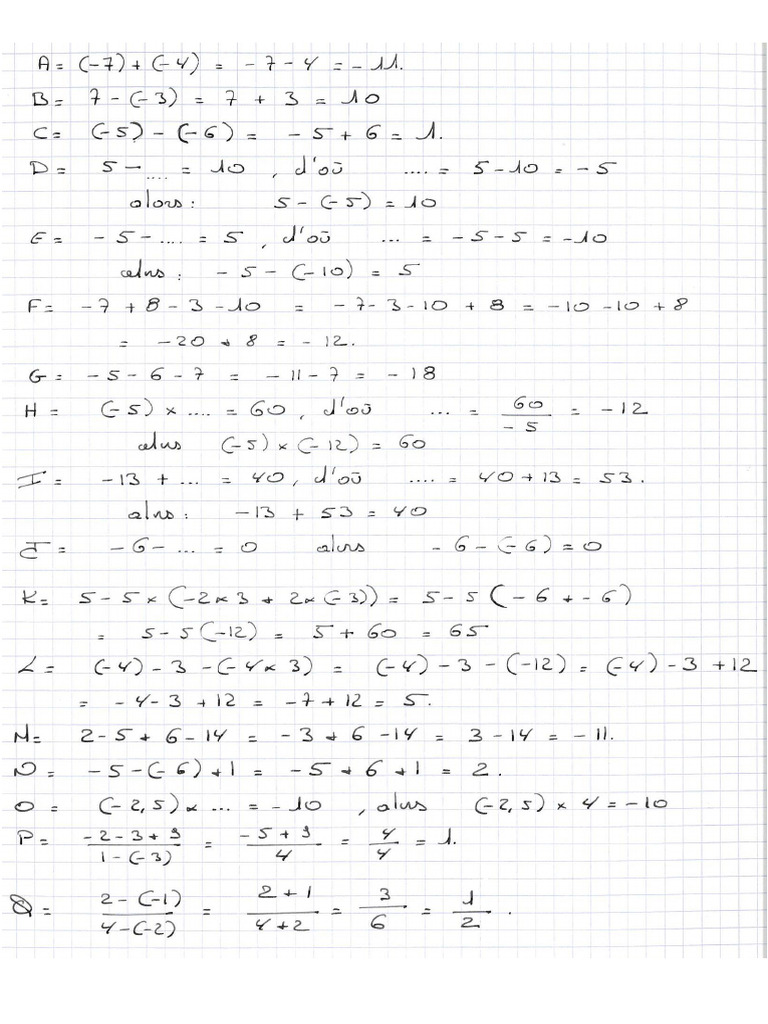 A = (-7) + (-4) = -7 - 4 = -11.
B = 7 - (-3) = 7 + 3 = 10
C = (-5) - (-6) = -5 + 6 = 1.
D = 5 - .... = 10 , d'où .... = 5 - 10 = -5
alors : 5 - (-5) = 10
E = -5 - .... = 5 , d'où ... = -5 - 5 = -10
alors : -5 - (-10) = 5
F = -7 + 8 - 3 - 10 = -7 - 3 - 10 + 8 = -10 - 10 + 8
= -20 + 8 = -12.
G = -5 - 6 - 7 = -11 - 7 = -18
H = (-5) × .... = 60 , d'où ... = 60/-5 = -12
alors (-5) × (-12) = 60
I = -13 + ... = 40 , d'où .... = 40 + 13 = 53.
alors : -13 + 53 = 40
J = -6 - ... = 0 alors -6 - (-6) = 0
K = 5 - 5 × (-2 × 3 + 2 × (-3)) = 5 - 5 (-6 + -6)
= 5 - 5 (-12) = 5 + 60 = 65
L = (-4) - 3 - (-4 × 3) = (-4) - 3 - (-12) = (-4) - 3 + 12
= -4 - 3 + 12 = -7 + 12 = 5.
M = 2 - 5 + 6 - 14 = -3 + 6 - 14 = 3 - 14 = -11.
N = -5 - (-6) + 1 = -5 + 6 + 1 = 2.
O = (-2,5) × ... = -10 , alors (-2,5) × 4 = -10
P = -2 - 3 + 9 / 1 - (-3) = -5 + 9 / 4 = 4/4 = 1.
Q = 2 - (-1) / 4 - (-2) = 2 + 1 / 4 + 2 = 3/6 = 1/2 .